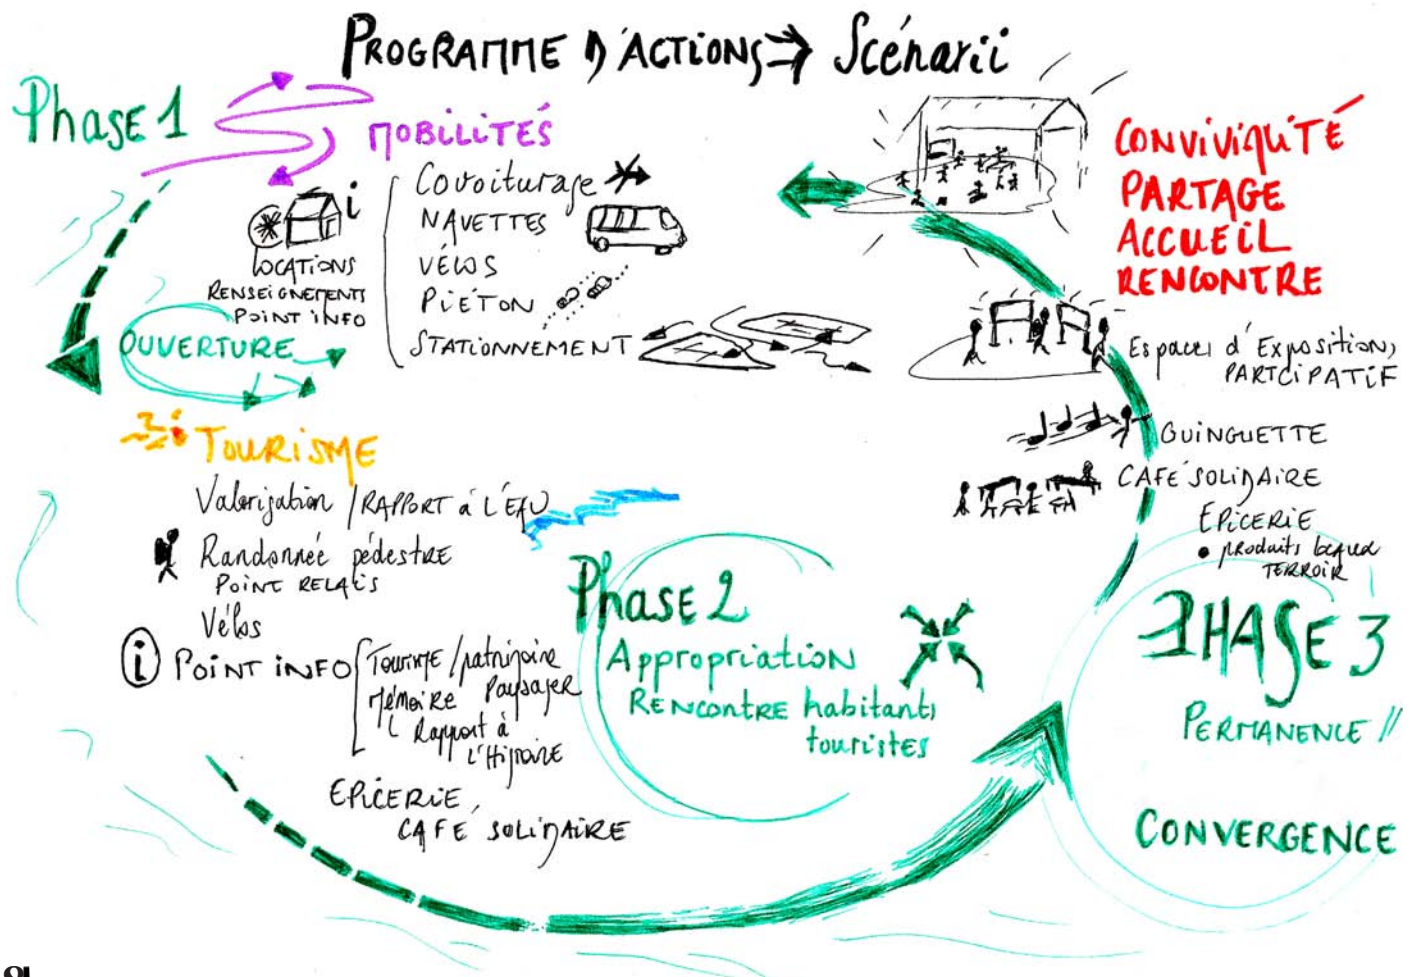 PROGRAMME D'ACTIONS → Scénarii
Phase 1
MOBILITÉS
Covoiturage
NAVETTES
VÉLOS
PIÉTON
STATIONNEMENT
i
LOCATIONS
RENSEIGNEMENTS
POINT INFO
OUVERTURE
TOURISME
Valorisation / RAPPORT à L'EAU
Randonnée pédestre
POINT RELAIS
Vélos
i POINT INFO
Tourisme / patrimoine
Mémoire Paysager
Rapport à
l'Histoire
EPICERIE,
CAFÉ SOLIDAIRE
Phase 2
Appropriation
RENCONTRE habitants
touristes
CONVIVIALITÉ
PARTAGE
ACCUEIL
RENCONTRE
Espaces d'Exposition,
PARTCIPATIF
GUINGUETTE
CAFÉ SOLIDAIRE
EPICERIE
• produits locaux
TERROIR
PHASE 3
PERMANENCE //
CONVERGENCE